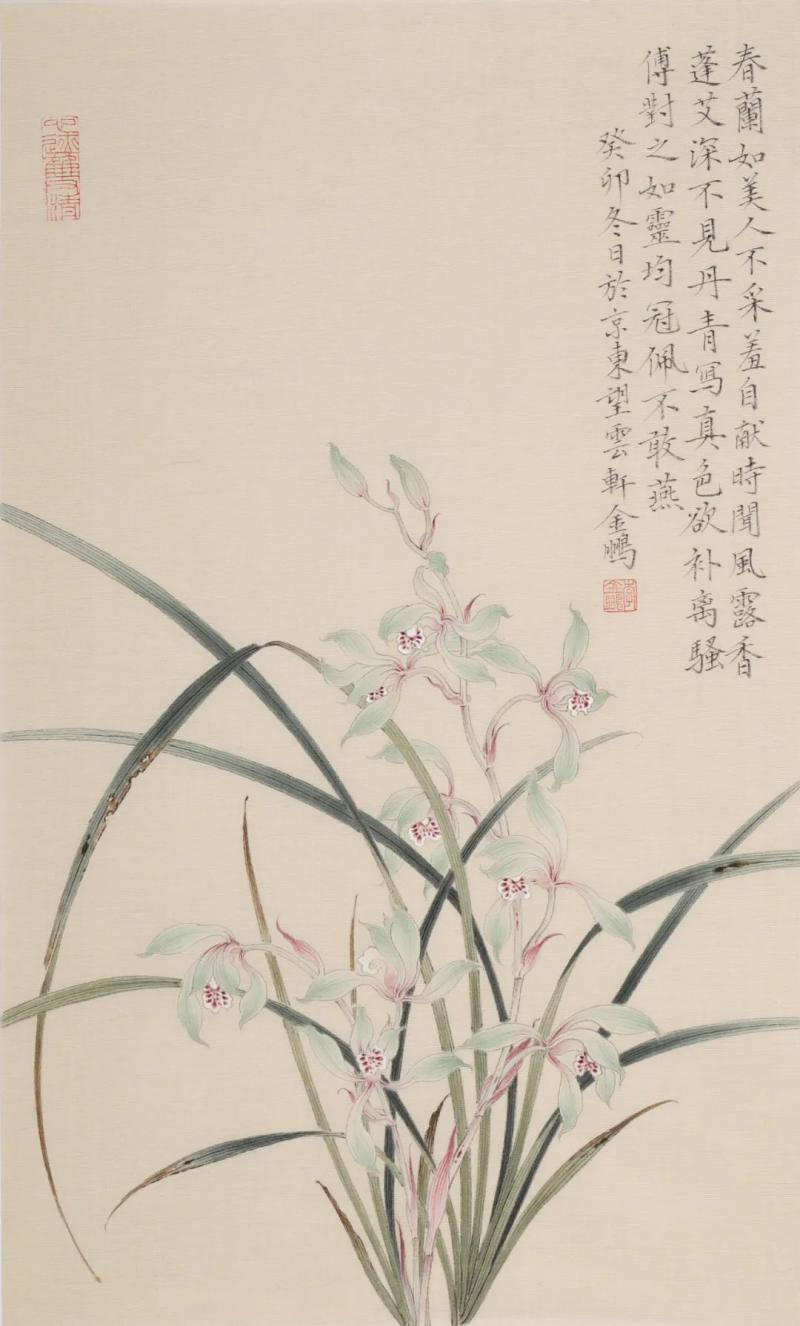 春蘭如美人不采羞自献時聞風露香
蓬艾深不見丹青寫真色欲补离騷
傅對之如靈均冠佩不敢燕
癸卯冬日於京東望雲軒金鵬